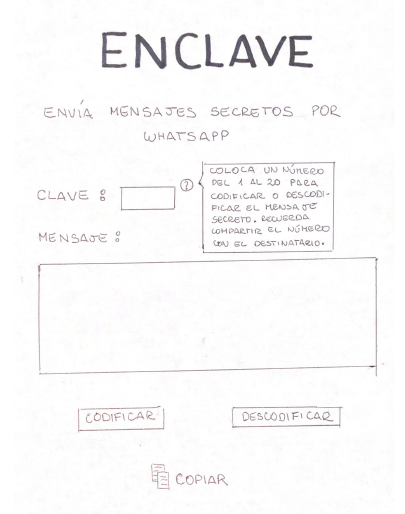 ENCLAVE
ENVÍA MENSAJES SECRETOS POR
WHATSAPP
CLAVE :
?
COLOCA UN NÚMERO
DEL 1 AL 20 PARA
CODIFICAR O DESCODI-
FICAR EL MENSAJE
SECRETO. RECUERDA
COMPARTIR EL NÚMERO
CON EL DESTINATARIO.
MENSAJE :
CODIFICAR
DESCODIFICAR
COPIAR